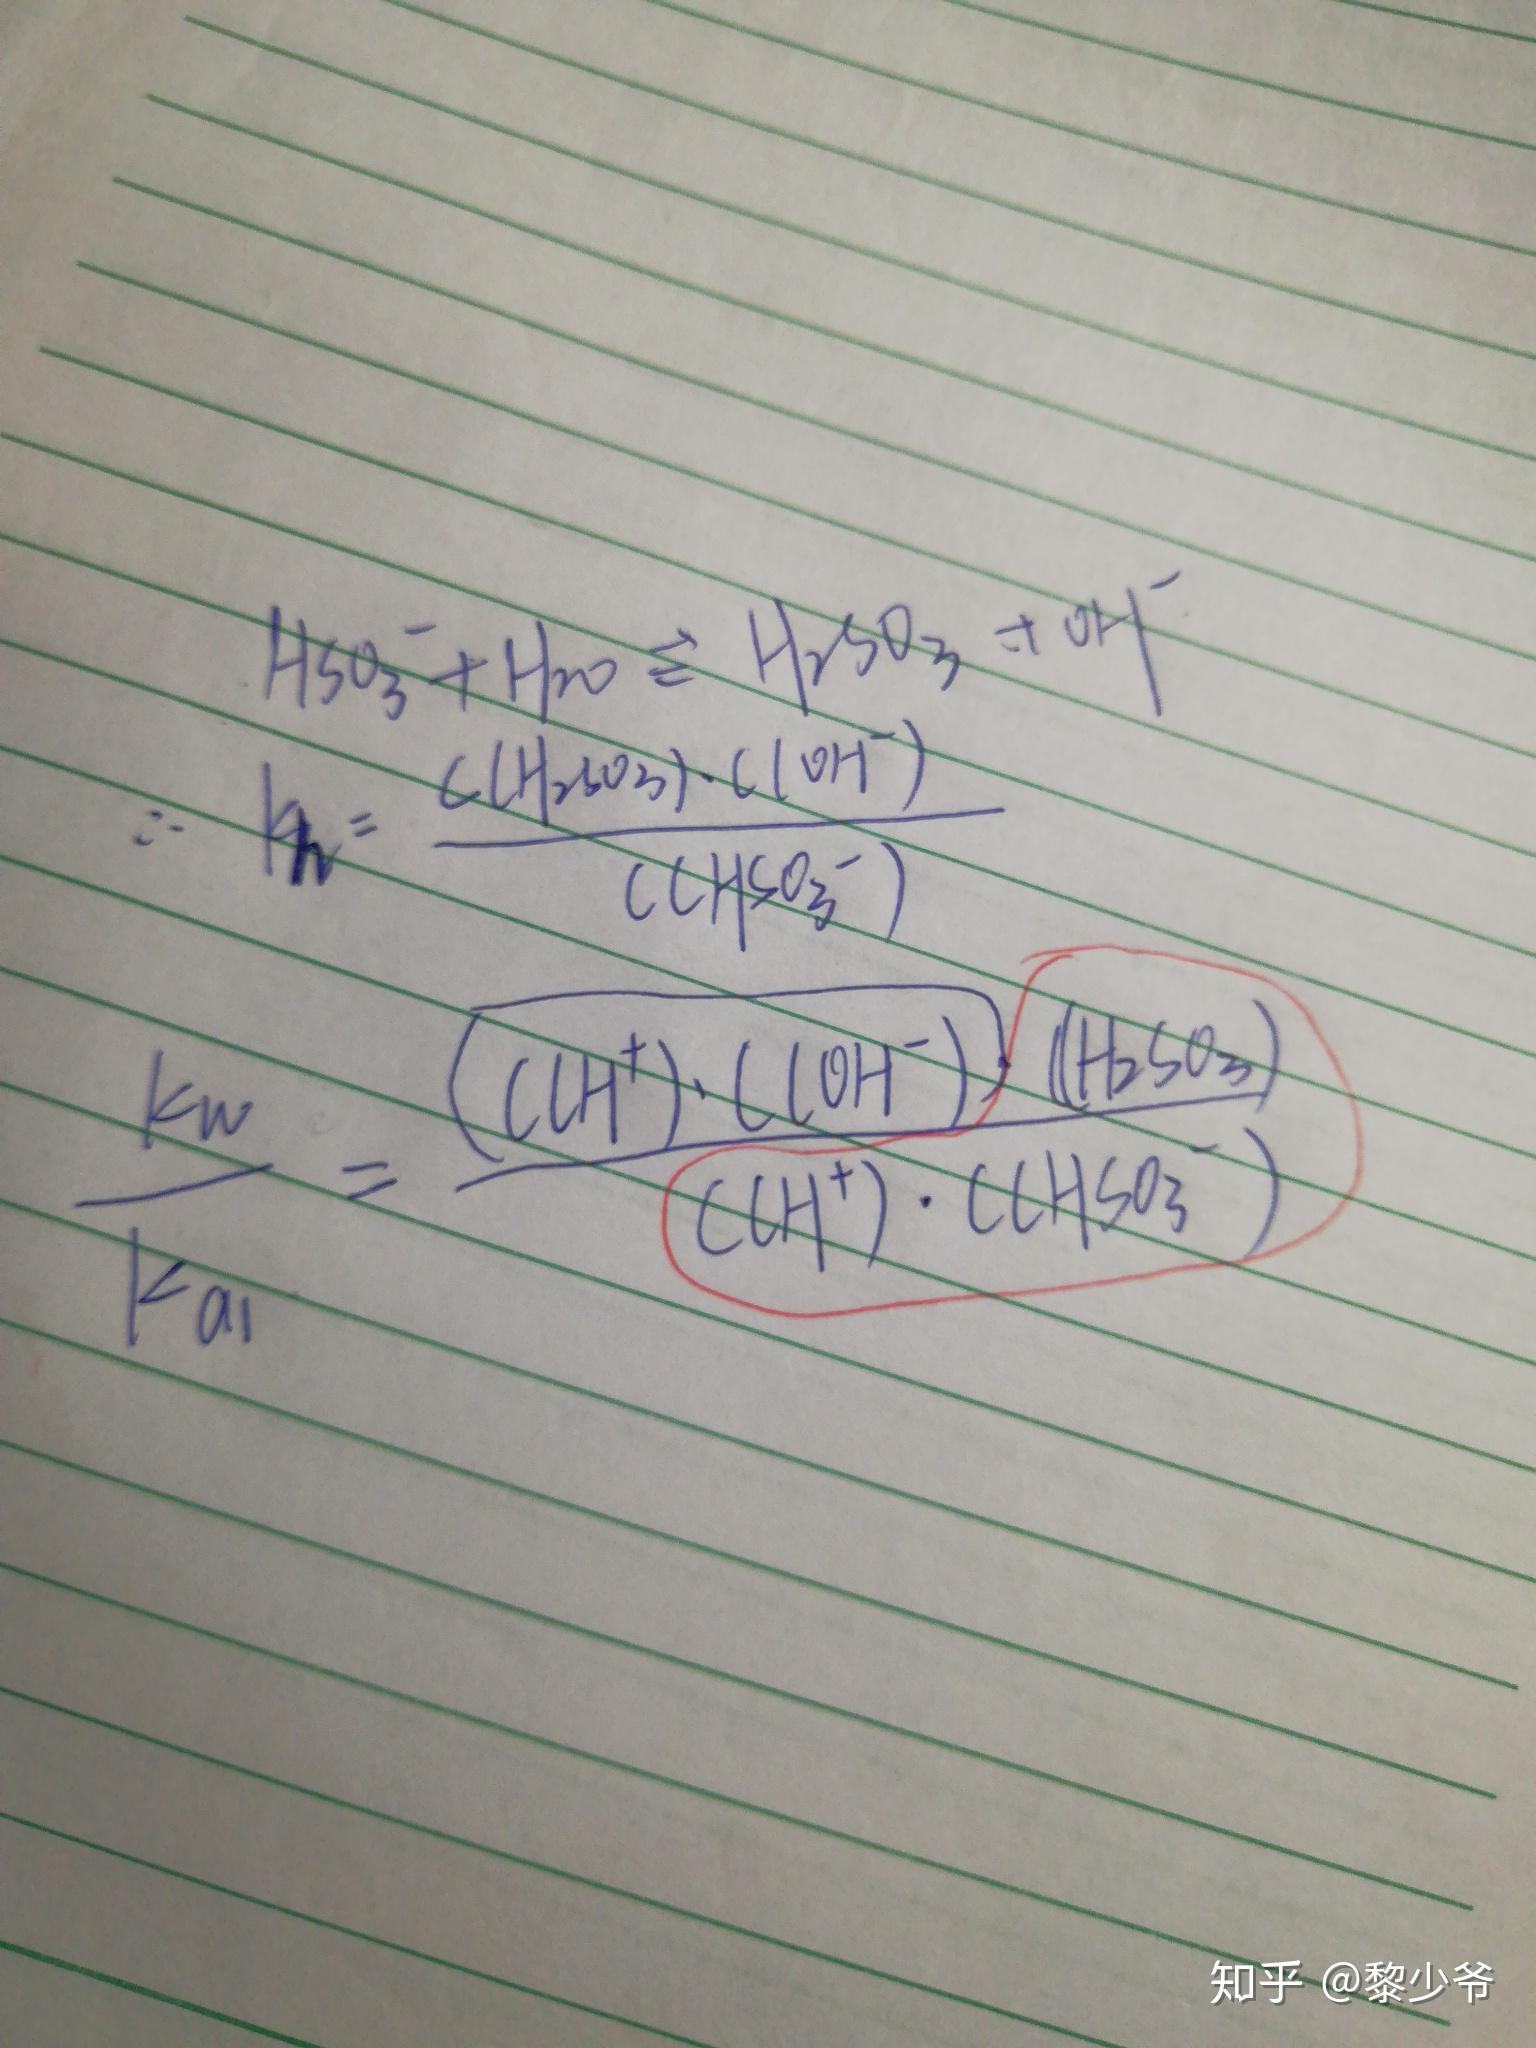 HSO₃⁻ + H₂O ⇌ H₂SO₃ + OH⁻
∴ Kh = C(H₂SO₃)·C(OH⁻) / C(HSO₃⁻)
Kw / Ka1 = (C(H⁺)·C(OH⁻))·C(H₂SO₃) / C(H⁺)·C(HSO₃⁻)
知乎 @黎少爷